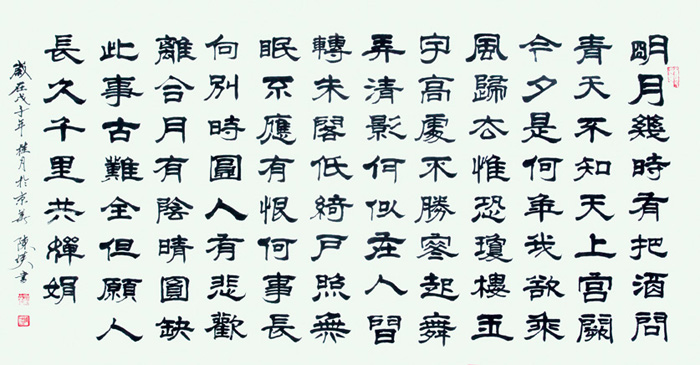 明月幾時有把酒問
青天不知天上宮闕
今夕是何年我欲乘
風歸去惟恐瓊樓玉
宇高處不勝寒起舞
弄清影何似在人間
轉朱閣低綺戶照無
眠不應有恨何事長
向別時圓人有悲歡
離合月有陰晴圓缺
此事古難全但願人
長久千里共嬋娟
歲在戊子年桂月於京華陳書